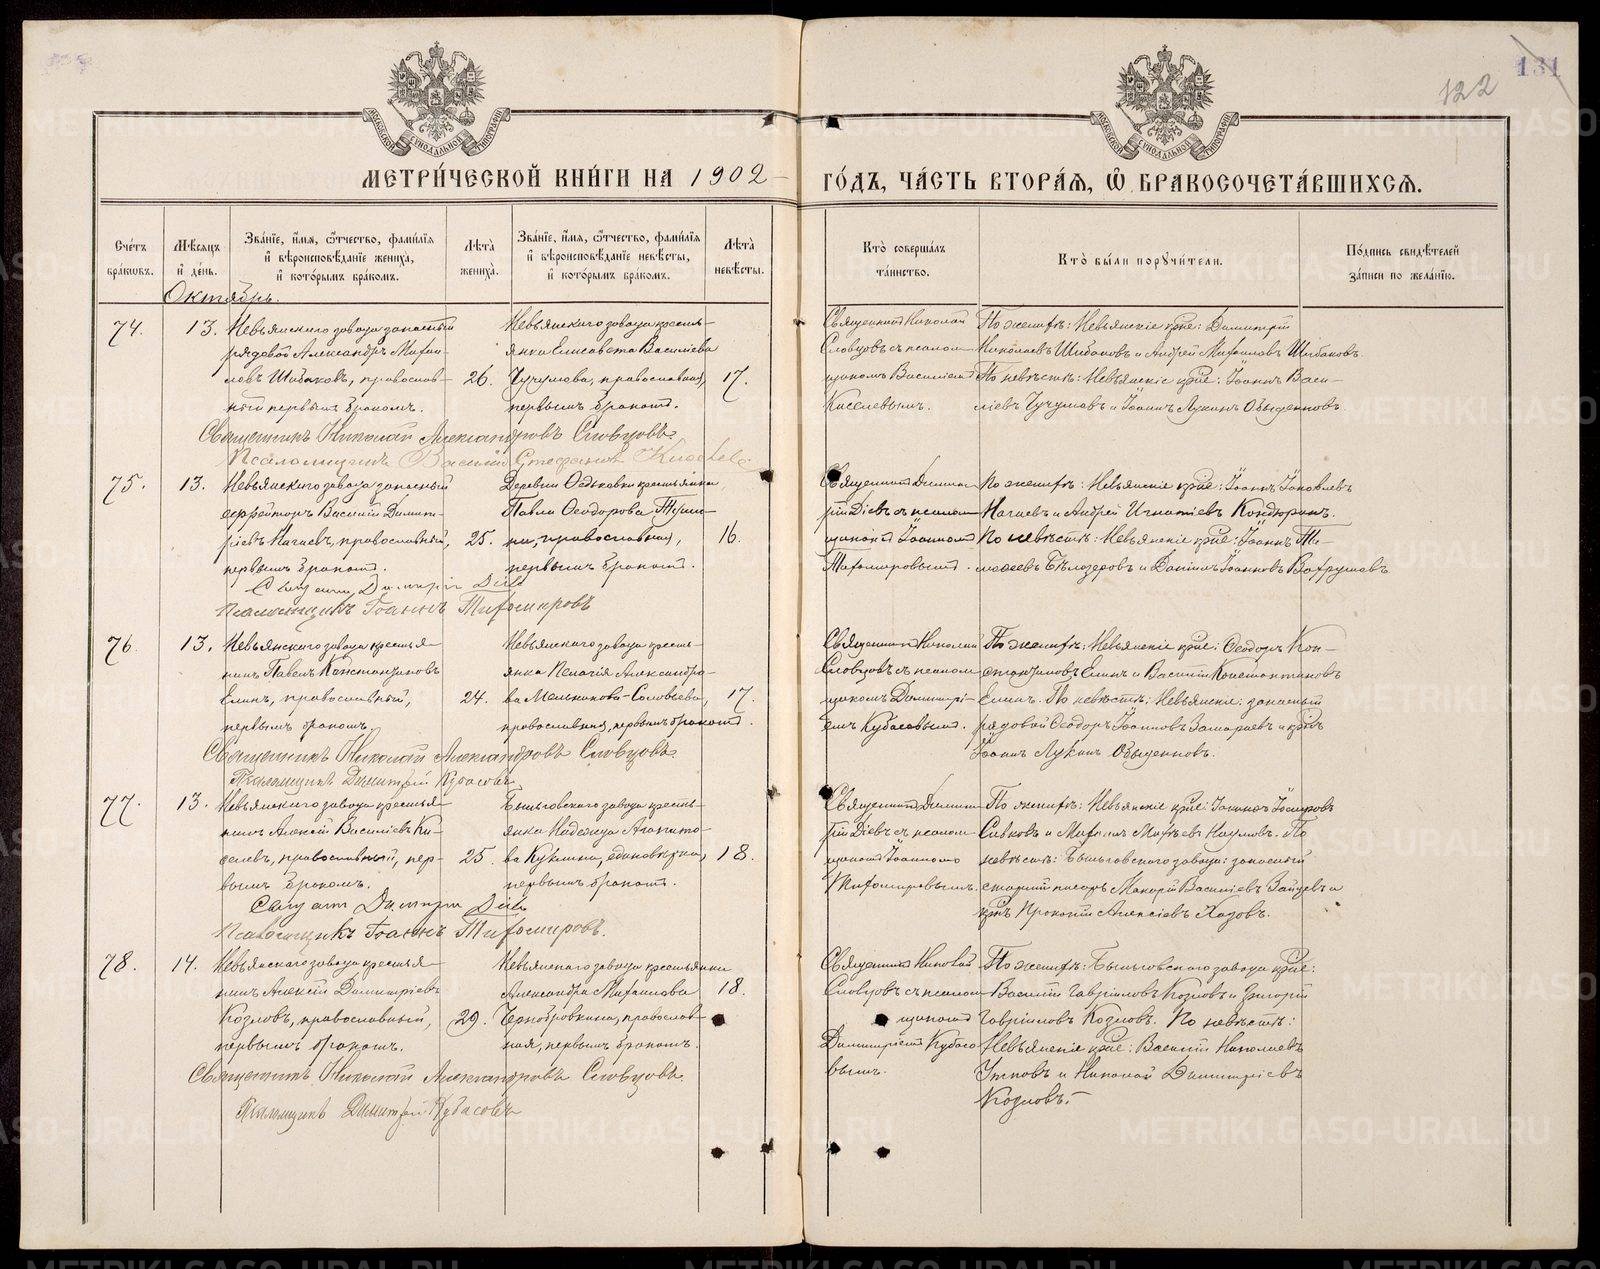 131
122
МОСКОВСКОЙ СѴНОДАЛЬНОЙ ТИПОГРАФІИ
МОСКОВСКОЙ СѴНОДАЛЬНОЙ ТИПОГРАФІИ
МЕТРИ́ЧЕСКОЙ КНИ́ГИ НА 1902
ГО́ДЪ, ЧА́СТЬ ВТОРА́Я, Ѽ БРАКОСОЧЕТА́ВШИХСЯ.
Сче́тъ бра́кѡвъ.
Мѣ́сяцъ и҆ де́нь.
Зва́нїе, и҆́мя, ѻ҆́тчество, фамі́лїя и҆ вѣроисповѣ́данїе жениха̀, и҆ кото́рымъ бра́комъ.
Лѣ̀та жениха̀.
Зва́нїе, и҆́мя, ѻ҆́тчество, фамі́лїя и҆ вѣроисповѣ́данїе невѣ́сты, и҆ кото́рымъ бра́комъ.
Лѣ̀та невѣ́сты.
Кто̀ соверша́лъ та́инство.
Кто̀ бы́ли порꙋчи́тели.
По́дпись свидѣ́телей за́писи по жела́нїю.
Октябрь.
74.
13.
Невьянскаго завода запасный
рядовой Александръ Михаи-
ловъ Шибаковъ, православ-
ный первымъ бракомъ.
26.
Невьянскаго завода кресть-
янка Елисавета Василіева
Чучумова, православная,
первымъ бракомъ.
17.
Священникъ Николай
Словцовъ съ псалом-
щикомъ Василіемъ
Киселевымъ.
По женихѣ: Невьянскіе кр͠не: Димитрій
Николаевъ Шибаковъ и Андрей Михаиловъ Шибаковъ.
По невѣстѣ: Невьянскіе кр͠не: Іоаннъ Васи-
ліевъ Чучумовъ и Іоаннъ Лукинъ Обыденновъ.
Священникъ Николай Александровъ Словцовъ.
Псаломщикъ Василій Стефановъ Киселевъ
75.
13.
Невьянскаго завода запасный
ефрейторъ Василій Димит-
ріевъ Нагаевъ, православный,
первымъ бракомъ.
25.
Деревни Осьховки крестьянка
Павла Ѳеодорова
православная,
первымъ бракомъ.
16.
Священникъ Димит-
рій Діевъ съ псалом-
щикомъ Іоанномъ
Тихомировымъ.
По женихѣ: Невьянскіе кр͠не: Іоаннъ Іаковлевъ
Нагаевъ и Андрей Игнатіевъ Кондюринъ.
По невѣстѣ: Невьянскіе кр͠не: Іоаннъ Ти-
моѳеевъ Бѣлозеровъ и Даніилъ Іоанновъ Вахрушевъ.
Священникъ Димитрій Діевъ
Псаломщикъ Іоаннъ Тихомировъ
76.
13.
Невьянскаго завода крестья-
нинъ Павелъ Константиновъ
Елинъ, православный,
первымъ бракомъ.
24.
Невьянскаго завода кресть-
янка Пелагія Александро-
ва Мельникова-Соловьева,
православная, первымъ бракомъ.
17.
Священникъ Николай
Словцовъ съ псалом-
щикомъ Димитрі-
емъ Кубасовымъ.
По женихѣ: Невьянскіе кр͠не: Ѳеодоръ Кон-
стантиновъ Елинъ и Василій Константиновъ
Елинъ. По невѣстѣ: Невьянскіе: запасный
рядовой Ѳеодоръ Іоанновъ Замараевъ и кр͠нъ
Іоаннъ Лукинъ Обыденновъ.
Священникъ Николай Александровъ Словцовъ.
Псаломщикъ Димитрій Кубасовъ
77.
13.
Невьянскаго завода крестья-
нинъ Алексій Василіевъ Ки-
селевъ, православный, пер-
вымъ бракомъ.
25.
Быньговскаго завода кресть-
янка Надежда Агапито-
ва Куклина, единовѣрка,
первымъ бракомъ.
18.
Священникъ Димит-
рій Діевъ съ псалом-
щикомъ Іоанномъ
Тихомировымъ.
По женихѣ: Невьянскіе кр͠не: Іоаннъ Іосифовъ
Сивковъ и Михаилъ Матѳеевъ Наумовъ. По
невѣстѣ: Быньговскаго завода: запасный
старшій писарь Макарій Василіевъ Зайцевъ и
кр͠нъ Прокопій Алексіевъ Хозовъ.
Священникъ Димитрій Діевъ
Псаломщикъ Іоаннъ Тихомировъ.
78.
14.
Невьянскаго завода крестья-
нинъ Алексій Димитріевъ
Козловъ, православный,
первымъ бракомъ.
29.
Невьянскаго завода крестьянка
Александра Михаилова
Чернобровкина, православ-
ная, первымъ бракомъ.
18.
Священникъ Николай
Словцовъ съ псалом-
щикомъ
Димитріемъ Кубасо-
вымъ.
По женихѣ: Быньговскаго завода кр͠не:
Василій Гавріиловъ Козловъ и Григорій
Гавріиловъ Козловъ. По невѣстѣ:
Невьянскіе кр͠не: Василій Николаевъ
Утковъ и Николай Димитріевъ
Козловъ.
Священникъ Николай Александровъ Словцовъ.
Псаломщикъ Димитрій Кубасовъ
METRIKI.GASO-URAL.RU